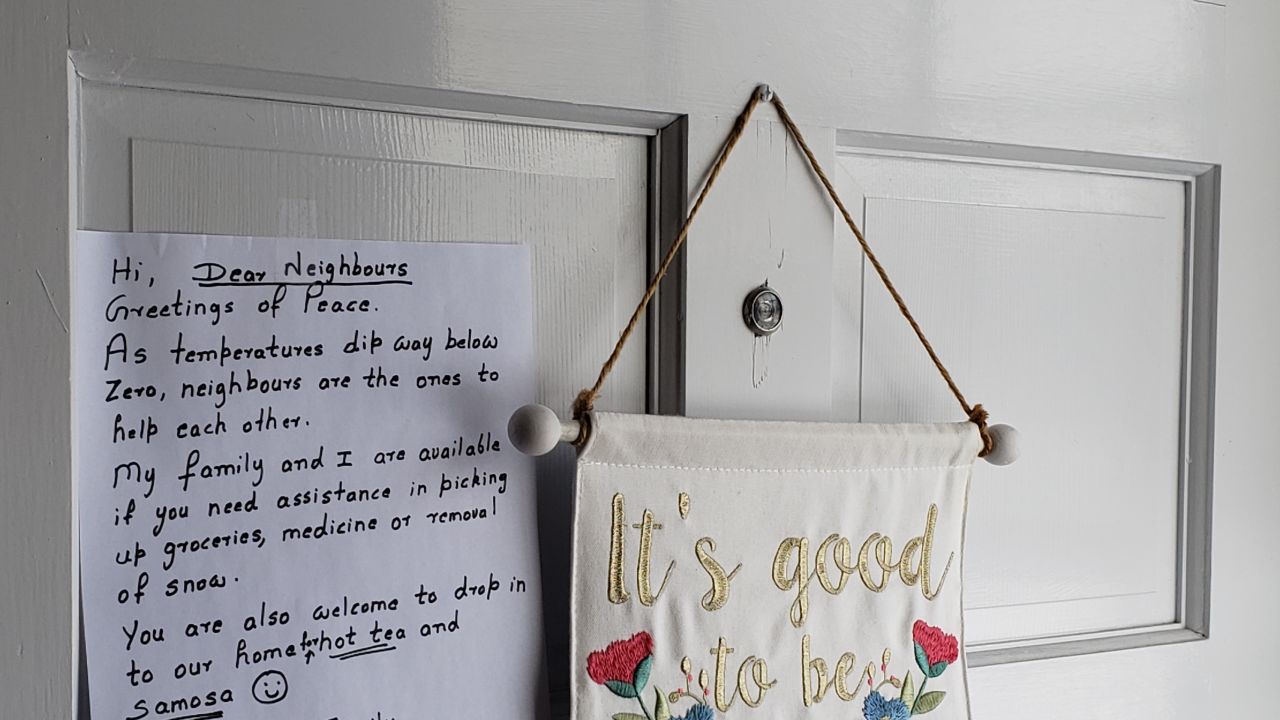 Hi, Dear Neighbours
Greetings of Peace.
As temperatures dip way below
Zero, neighbours are the ones to
help each other.
My family and I are available
if you need assistance in picking
up groceries, medicine or removal
of snow.
You are also welcome to drop in
to our home for hot tea and
Samosa
It's good
to be